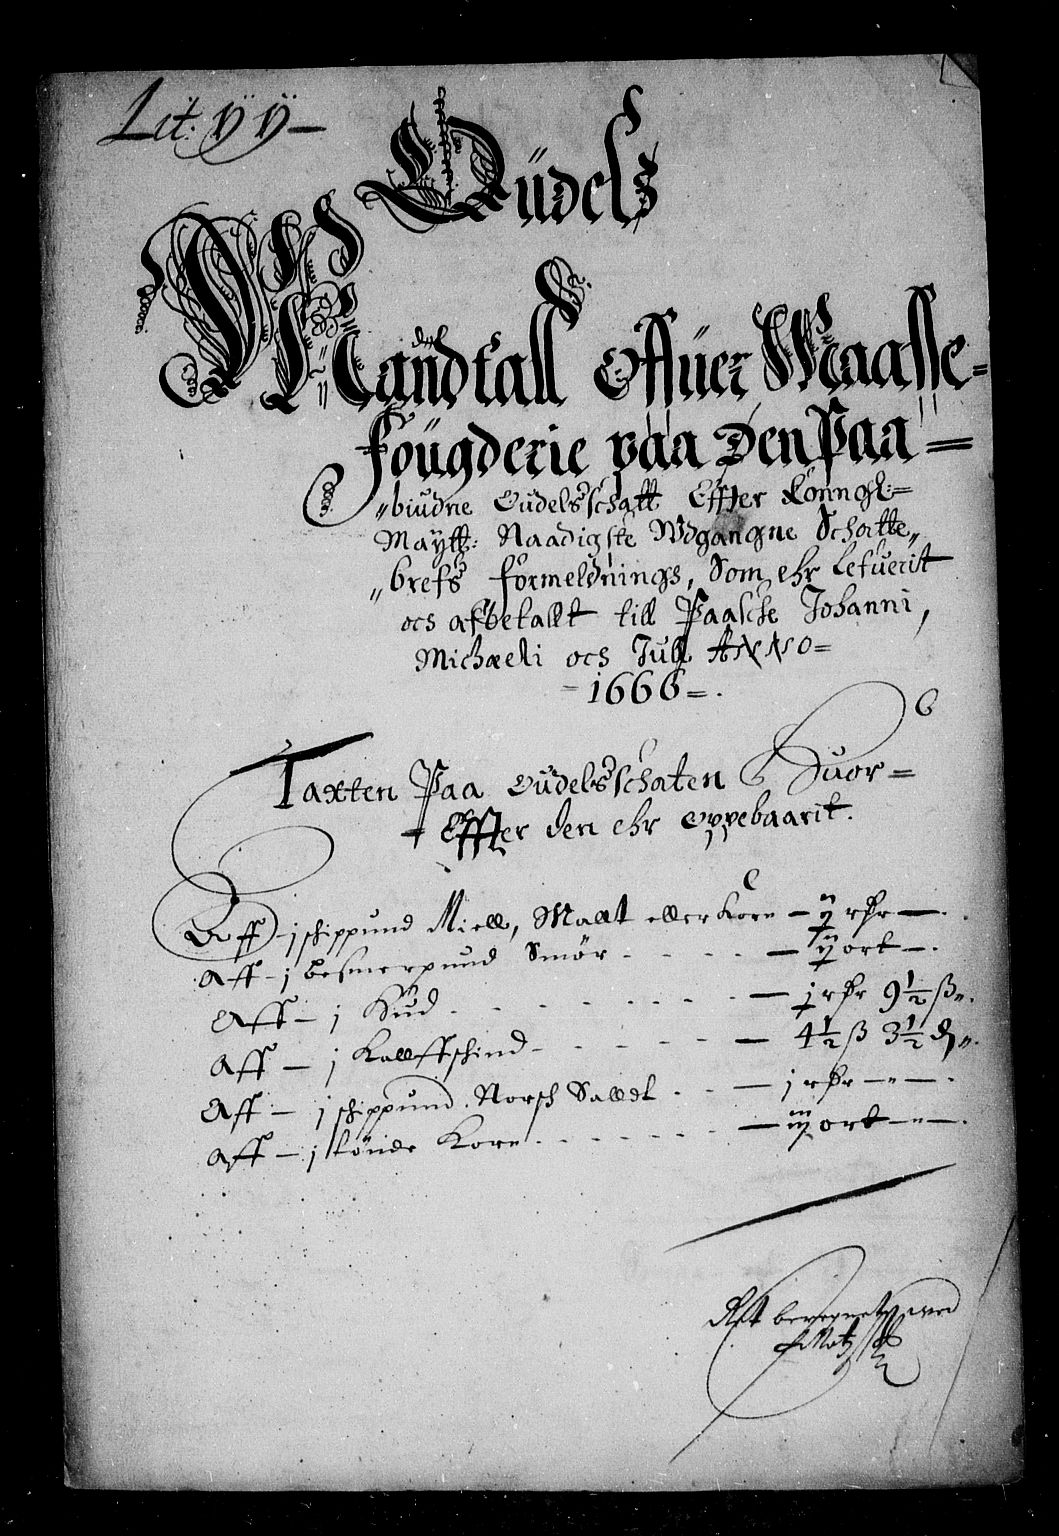 Lit: ÿÿ
Oüdels
Mandtall Offüer Maasse-
fougderie paa Den Paa=
biudne Oudelsschatt Effter Konngl:
Maytt: Naadigste Wdgangne Schatte
brefs formeldnings, Som ehr Lefuerit
och afbetallt till Paasche Johanni,
Michaeli och Jull Anno
1666
Taxten Paa Oudelsschaten Huor=
Effter den ehr oppebaarit.
Aff – j schippund Miell, Mallt eller Korn – ij rdr –
Aff – j besmerpund Smör – ij ort –
Aff – j Hüd – j rdr 9½ ß
Aff – j Kallffschind – 4½ ß 3½ d
Aff – j schippund Norsch Salldt – j rdr –
Aff – j tönde Korn – iij ort –